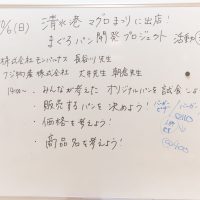 10/6(日) 清水港マグロまつりに出店!
まぐろパン開発プロジェクト 活動
株式会社モンパルナス 長谷川先生
フジ物産株式会社 大井先生 朝倉先生
・みんなが考えたオリジナルパンを試食しよ
・販売するパンを決めよう!
・価格を考えよう!
・商品名を考えよう!